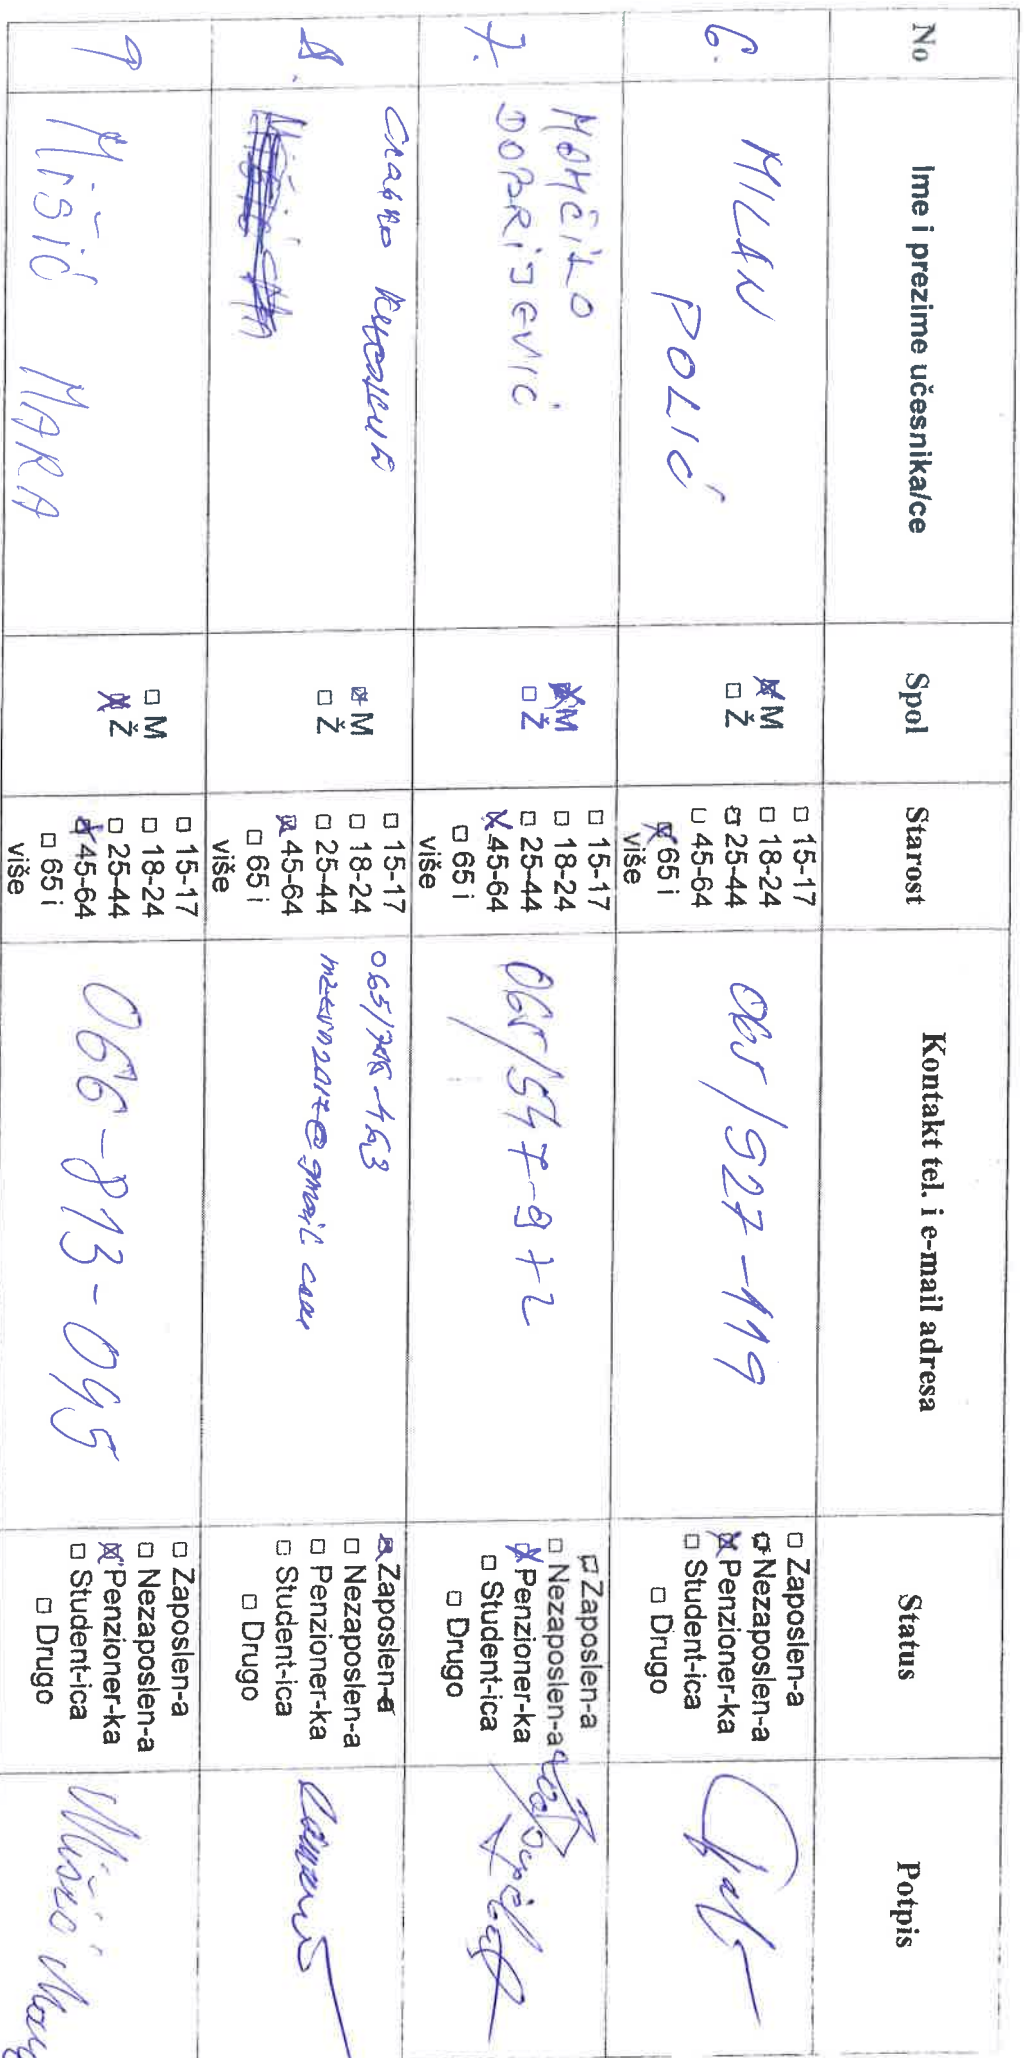 No Ime i prezime učesnika/ce Spol Starost Kontakt tel. i e-mail adresa Status Potpis
6.
MILAN
POLIĆ
M
Ž
15-17
18-24
25-44
45-64
65 i
više
065/927-119
Zaposlen-a
Nezaposlen-a
Penzioner-ka
Student-ica
Drugo
7.
MOMČILO
DOBRIJEVIĆ
M
Ž
15-17
18-24
25-44
45-64
65 i
više
065/547-972
Zaposlen-a
Nezaposlen-a
Penzioner-ka
Student-ica
Drugo
8.
Славко
M
Ž
15-17
18-24
25-44
45-64
65 i
više
Zaposlen-a
Nezaposlen-a
Penzioner-ka
Student-ica
Drugo
9
MIŠIĆ MARA
M
Ž
15-17
18-24
25-44
45-64
65 i
više
066-813-045
Zaposlen-a
Nezaposlen-a
Penzioner-ka
Student-ica
Drugo
Mišić